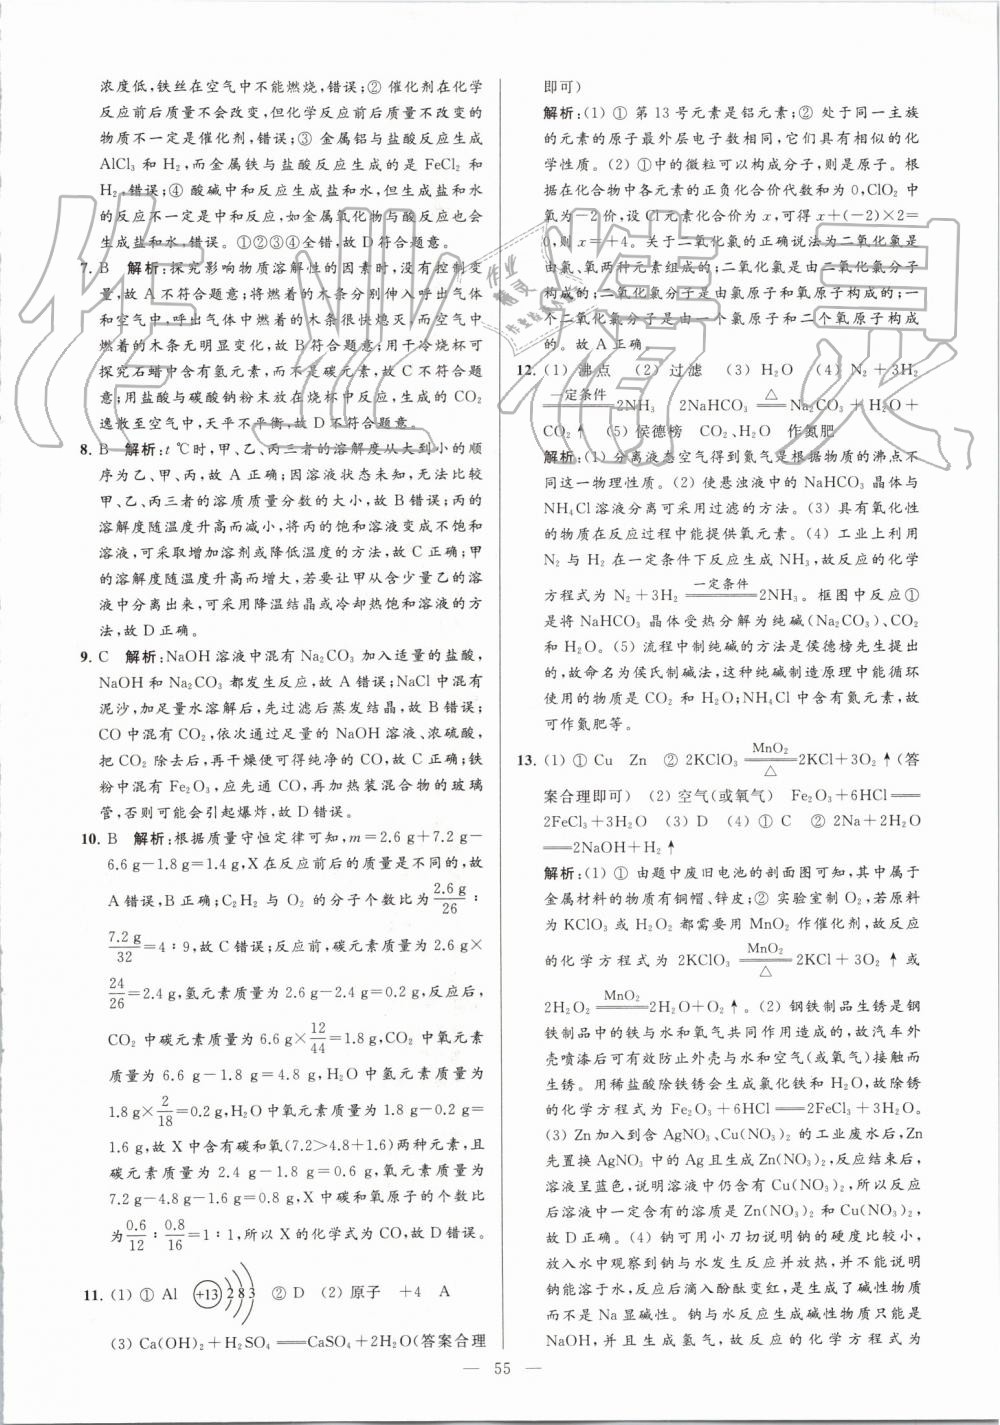 浓度低,铁丝在空气中不能燃烧,错误;② 催化剂在化学
反应前后质量不会改变,但化学反应前后质量不改变的
物质不一定是催化剂,错误;③ 金属铝与盐酸反应生成
AlCl₃ 和 H₂,而金属铁与盐酸反应生成的是 FeCl₂ 和
H₂,错误;④ 酸碱中和反应生成盐和水,但生成盐和水
的反应不一定是中和反应,如金属氧化物与酸反应也会
生成盐和水,错误。①②③④全错,故 D 符合题意。
7. B 解析:探究影响物质溶解性的因素时,没有控制变
量,故 A 不符合题意;将燃着的木条分别伸入呼出气体
和空气中,呼出气体中燃着的木条很快熄灭,而空气中
燃着的木条无明显变化,故 B 符合题意;用干冷烧杯可
探究石蜡中含有氢元素,而不是碳元素,故 C 不符合题
意;用盐酸与碳酸钠粉末放在烧杯中反应,生成的 CO₂
逸散至空气中,天平不平衡,故 D 不符合题意。
8. B 解析:t ℃时,甲、乙、丙三者的溶解度从大到小的顺
序为乙、甲、丙,故 A 正确;因溶液状态未知,无法比较
甲、乙、丙三者的溶质质量分数的大小,故 B 错误;丙的
溶解度随温度升高而减小,将丙的饱和溶液变成不饱和
溶液,可采取增加溶剂或降低温度的方法,故 C 正确;甲
的溶解度随温度升高而增大,若要让甲从含少量乙的溶
液中分离出来,可采用降温结晶或冷却热饱和溶液的方
法,故 D 正确。
9. C 解析:NaOH 溶液中混有 Na₂CO₃ 加入适量的盐酸,
NaOH 和 Na₂CO₃ 都发生反应,故 A 错误;NaCl 中混有
泥沙,加足量水溶解后,先过滤后蒸发结晶,故 B 错误;
CO 中混有 CO₂,依次通过足量的 NaOH 溶液、浓硫酸,
把 CO₂ 除去后,再干燥可得纯净的 CO,故 C 正确;铁
粉中混有 Fe₂O₃,应先通 CO,再加热装混合物的玻璃
管,否则可能会引起爆炸,故 D 错误。
10. B 解析:根据质量守恒定律可知,m=2.6 g+7.2 g−
6.6 g−1.8 g=1.4 g,X 在反应前后的质量是不同的,故
A 错误,B 正确;C₂H₂ 与 O₂ 的分子个数比为 2.6 g/26 ∶
7.2 g/32=4∶9,故 C 错误;反应前,碳元素质量为 2.6 g×
24/26=2.4 g,氢元素质量为 2.6 g−2.4 g=0.2 g,反应后,
CO₂ 中碳元素质量为 6.6 g×12/44=1.8 g,CO₂ 中氧元素
质量为 6.6 g−1.8 g=4.8 g,H₂O 中氢元素质量为
1.8 g×2/18=0.2 g,H₂O 中氧元素质量为 1.8 g−0.2 g=
1.6 g,故 X 中含有碳和氧(7.2>4.8+1.6)两种元素,且
碳元素质量为 2.4 g−1.8 g=0.6 g,氧元素质量为
7.2 g−4.8 g−1.6 g=0.8 g,X 中碳和氧原子的个数比
为 0.6/12∶0.8/16=1∶1,所以 X 的化学式为 CO,故 D 错误。
11. (1) ① Al +13 2 8 3 ② D (2) 原子 +4 A
(3) Ca(OH)₂+H₂SO₄══CaSO₄+2H₂O(答案合理
即可)
解析:(1) ① 第 13 号元素是铝元素;② 处于同一主族
的元素的原子最外层电子数相同,它们具有相似的化
学性质。(2) ①中的微粒可以构成分子,则是原子。根
据在化合物中各元素的正负化合价代数和为 0,ClO₂ 中
氧为−2 价,设 Cl 元素化合价为 x,可得 x+(−2)×2=
0,则 x=+4。关于二氧化氯的正确说法为二氧化氯是
由氯、氧两种元素组成的;二氧化氯是由二氧化氯分子
构成的;二氧化氯分子是由氯原子和氧原子构成的;一
个二氧化氯分子是由一个氯原子和二个氧原子构成
的。故 A 正确。
12. (1) 沸点 (2) 过滤 (3) H₂O (4) N₂+3H₂
一定条件══2NH₃ 2NaHCO₃ △══ Na₂CO₃+H₂O+
CO₂↑ (5) 侯德榜 CO₂、H₂O 作氮肥
解析:(1) 分离液态空气得到氮气是根据物质的沸点不
同这一物理性质。(2) 使悬浊液中的 NaHCO₃ 晶体与
NH₄Cl 溶液分离可采用过滤的方法。(3) 具有氧化性
的物质在反应过程中能提供氧元素。(4) 工业上利用
N₂ 与 H₂ 在一定条件下反应生成 NH₃,故反应的化学
方程式为 N₂+3H₂ 一定条件══2NH₃。框图中反应①
是将 NaHCO₃ 晶体受热分解为纯碱(Na₂CO₃)、CO₂
和 H₂O。(5) 流程中制纯碱的方法是侯德榜先生提出
的,故命名为侯氏制碱法,这种纯碱制造原理中能循环
使用的物质是 CO₂ 和 H₂O;NH₄Cl 中含有氮元素,故
可作氮肥等。
13. (1) ① Cu Zn ② 2KClO₃ MnO₂══△ 2KCl+3O₂↑(答
案合理即可) (2) 空气(或氧气) Fe₂O₃+6HCl══
2FeCl₃+3H₂O (3) D (4) ① C ② 2Na+2H₂O
══2NaOH+H₂↑
解析:(1) ① 由题中废旧电池的剖面图可知,其中属于
金属材料的物质有铜帽、锌皮;② 实验室制 O₂,若原料
为 KClO₃ 或 H₂O₂ 都需要用 MnO₂ 作催化剂,故反应
的化学方程式为 2KClO₃ MnO₂══△ 2KCl+3O₂↑或
2H₂O₂ MnO₂══ 2H₂O+O₂↑。(2) 钢铁制品生锈是钢
铁制品中的铁与水和氧气共同作用造成的,故汽车外
壳喷漆后可有效防止外壳与水和空气(或氧气)接触而
生锈。用稀盐酸除铁锈会生成氯化铁和水,故除锈
的化学方程式为 Fe₂O₃+6HCl══2FeCl₃+3H₂O。
(3) Zn加入到含 AgNO₃、Cu(NO₃)₂ 的工业废水后,Zn
先置换 AgNO₃ 中的 Ag且生成 Zn(NO₃)₂,反应结束后,
溶液呈蓝色,说明溶液中仍含有 Cu(NO₃)₂,所以反应
后溶液中一定含有的溶质是 Zn(NO₃)₂ 和 Cu(NO₃)₂,
故 D 正确。(4) 钠可用小刀切说钠的硬度比较小,
放入水中观察到钠与水发生反应并放热,并不能说明
钠能溶于水,反应后滴入酚酞变红,是生成了碱性物质
而不是 Na 显碱性。钠与水反应生成碱性物质只能是
NaOH,并且生成氢气,故反应的化学方程式为
— 55 —
作业精灵